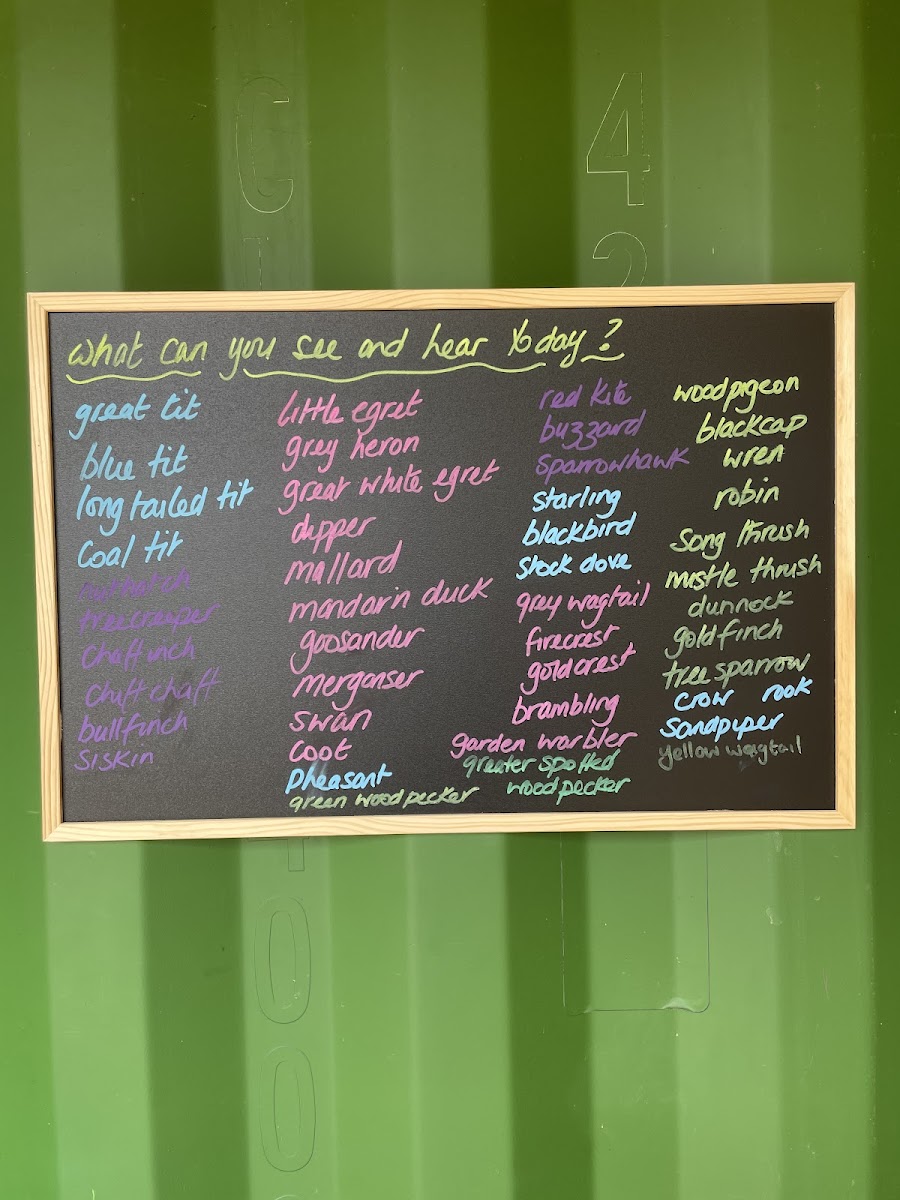 C
4
2
what can you see and hear today?
great tit
blue tit
long tailed tit
coal tit
nuthatch
treecreeper
chaffinch
chiffchaff
bullfinch
siskin
little egret
grey heron
great white egret
dipper
mallard
mandarin duck
goosander
merganser
swan
coot
pheasant
green woodpecker
red kite
buzzard
sparrowhawk
starling
blackbird
stock dove
grey wagtail
firecrest
goldcrest
brambling
garden warbler
greater spotted
woodpecker
woodpigeon
blackcap
wren
robin
song thrush
mistle thrush
dunnock
goldfinch
tree sparrow
crow rook
sandpiper
yellow wagtail
0
0